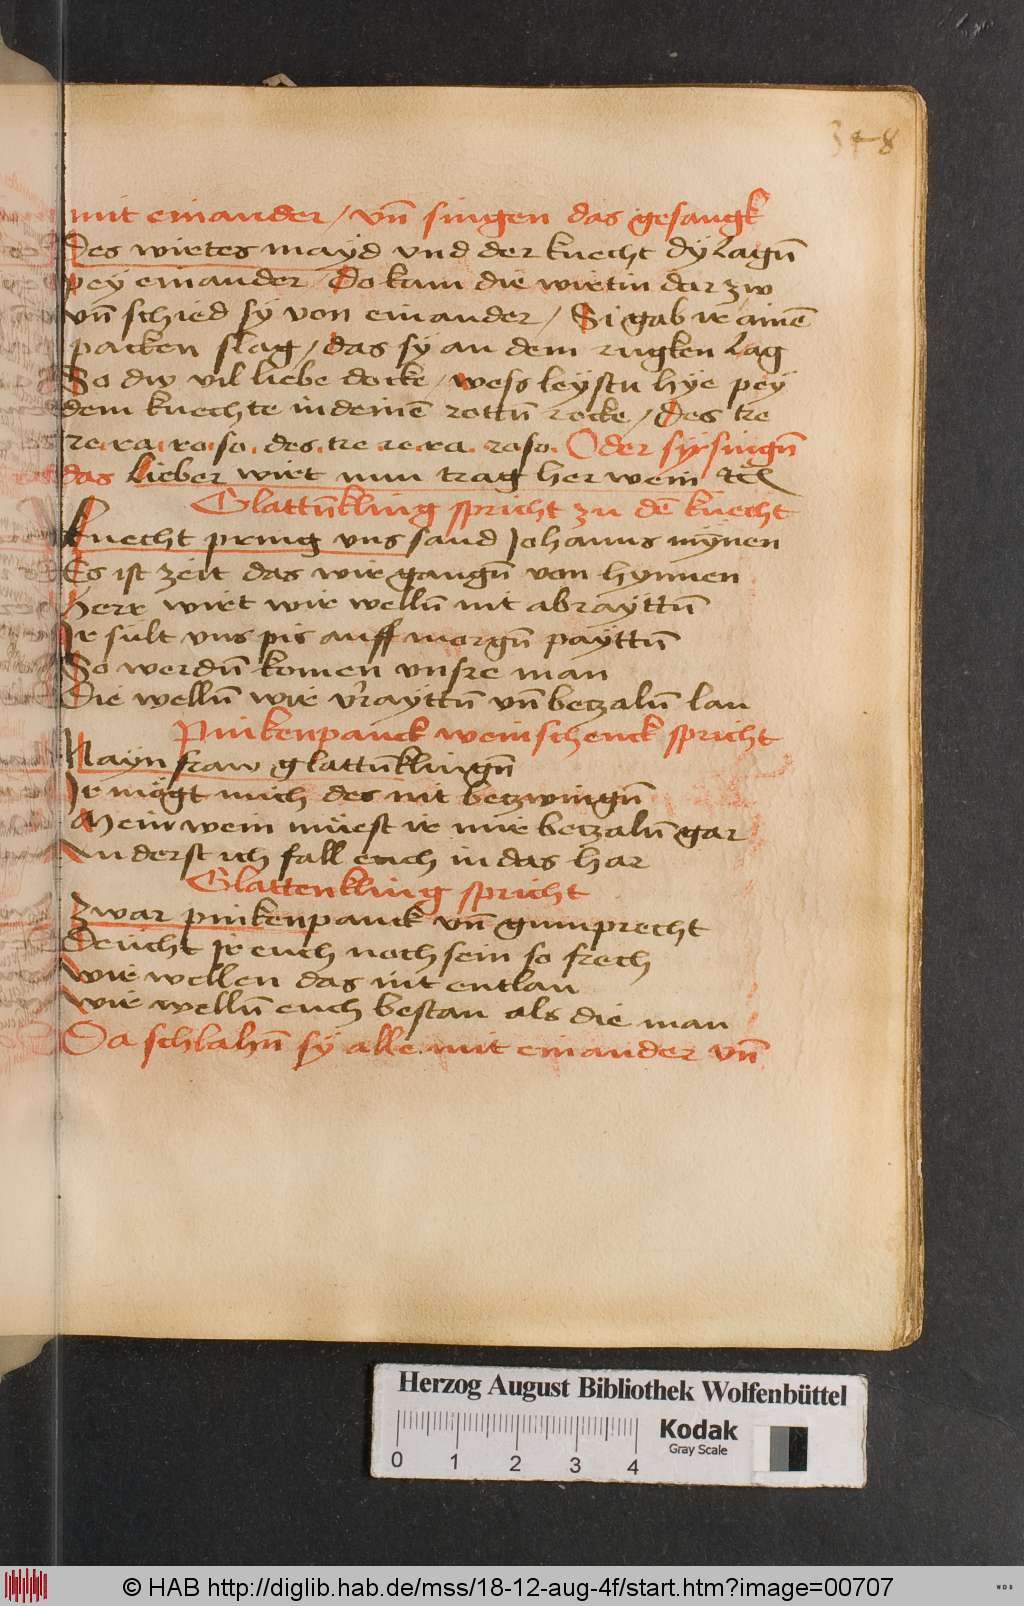 348
mit einander / vn̄ singen das gesangk
Des wirtes mayd vnd der knecht dy lagn̄
pey einander Do kam die wirtin dar zw
vn̄ schied sy von einander / Si gab ir ainē
packen slag / das sy an dem rugken lag
So diw vil liebe docke / wess leystu hye pey
dem knechte in deinē rottn̄ rocke / Des tre
re. ra. ro. so. des. tre re. ra. roso. Oder sy singn̄
das Lieber wirt nun trag her wein etc
Glattn̄kling spricht zu dē knecht
Knecht pring vns sand Johanns mynen
Es ist zeit das wir gangn̄ von hynnen
Herr wirt wir welln̄ nit abrayttn̄
Ir sult vns pis auff morgn̄ payttn̄
So werdn̄ komen vnsre man
Die welln̄ wir v̄rayttn̄ vn̄ betzaln̄ lan
Pinkenpanck weinschenck spricht
Nayn fraw glattn̄klingn̄
Ir mögt mich des nit betzwingn̄
Mein wein müest ir mir betzaln̄ gar
Anderst ich fall euch in das har
Glattenkling spricht
Zwar pinkenpanck vn̄ gumprecht
Deucht ir euch noch sein so frech
wir wellen das nit entlan
wir welln̄ euch bestan als die man
Da schlahn̄ sy alle mit einander vn̄
Herzog August Bibliothek Wolfenbüttel
Kodak
Gray Scale
0 1 2 3 4
© HAB http://diglib.hab.de/mss/18-12-aug-4f/start.htm?image=00707